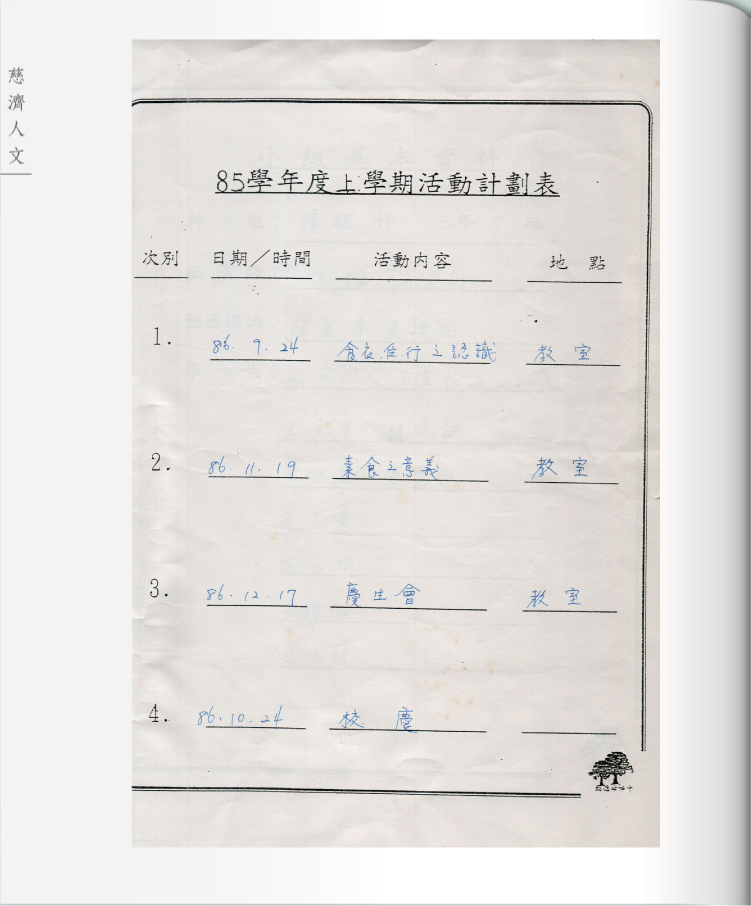 慈濟人文
85學年度上學期活動計劃表
次別 日期／時間 活動內容 地點
1. 86.9.24 食衣住行之認識 教室
2. 86.11.19 素食之意義 教室
3. 86.12.17 慶生會 教室
4. 86.10.24 校慶